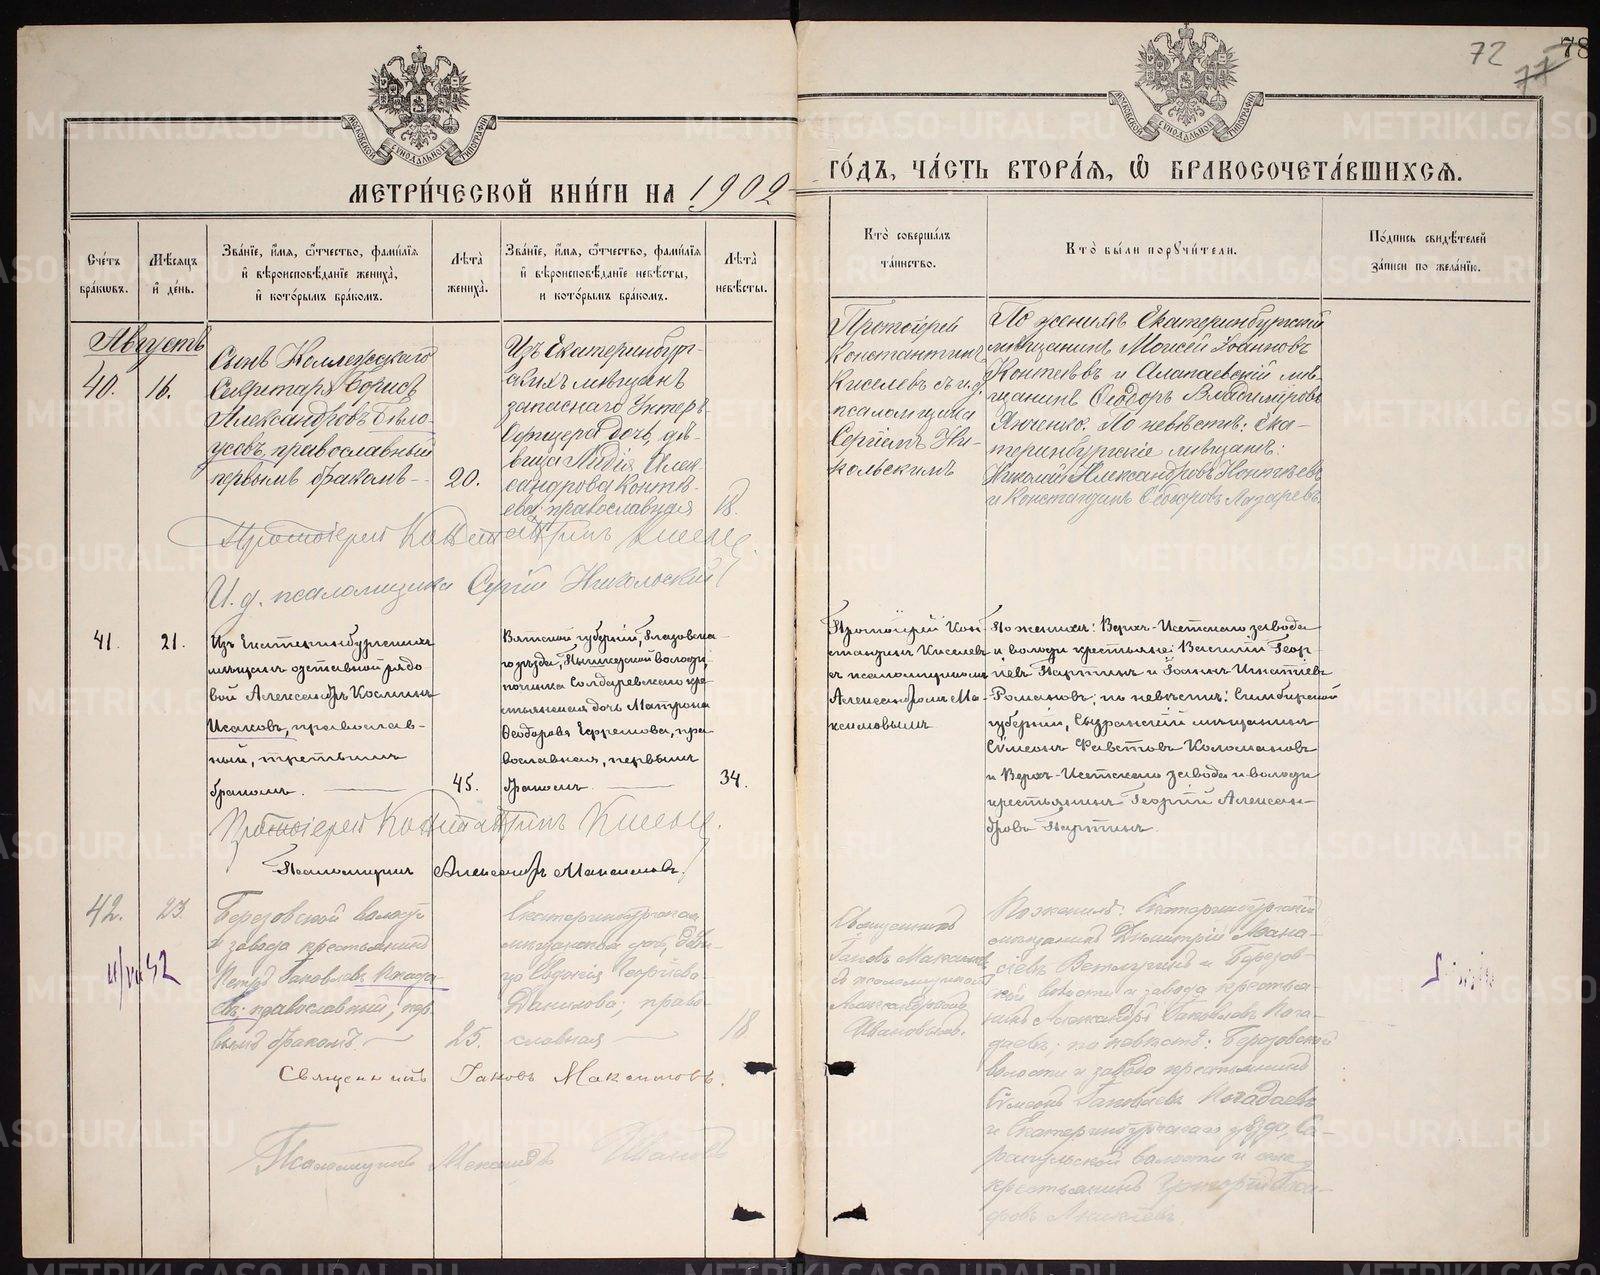 72
77
78
МОСКОВСКОЙ СѴНОДАЛЬНОЙ ТИПОГРАФІИ
МОСКОВСКОЙ СѴНОДАЛЬНОЙ ТИПОГРАФІИ
МЕТРИ́ЧЕСКОЙ КНИ́ГИ НА 1902
ГО́ДЪ, ЧА́СТЬ ВТОРА́Ѧ, Ѡ҆ БРАКОСОЧЕТА́ВШИХСѦ.
Сче́тъ бра́кѡвъ.
Мѣ́сѧцъ и҆ де́нь.
Зва́нїе, и҆́мѧ, ѻ҆́тчество, фами́лїѧ и҆ вѣроисповѣ́данїе жениха̀, и҆ кото́рымъ бра́комъ.
Лѣ́та̀ жениха̀.
Зва́нїе, и҆́мѧ, ѻ҆́тчество, фами́лїѧ и҆ вѣроисповѣ́данїе невѣ́сты, и кото́рымъ бра́комъ.
Лѣ́та̀ невѣ́сты.
Кто̀ соверша́лъ та́инство.
Кто̀ бы́ли порꙋчи́тели.
По́дпись свидѣ́телей за́писи по жела́нїю.
Августъ
40.
16.
Сынъ Коллежскаго
Секретаря Борисъ
Александровъ Бѣло-
усовъ, православный
первымъ бракомъ
20.
Изъ Екатеринбург-
скихъ мѣщанъ
запаснаго Унтеръ-
Офицера дочь, дѣ-
вица Лидія Алек-
сандрова Контѣ-
ева, православная
18.
Протоіерей
Константинъ
Киселевъ съ и. д.
псаломщика
Сергіемъ Ни-
кольскимъ
По женихѣ Екатеринбургскій
мѣщанинъ Моисей Іоанновъ
Контѣевъ и Алапаевскій мѣ-
щанинъ Ѳеодоръ Владиміровъ
Янченко. По невѣстѣ: Ека-
теринбургскіе мѣщане:
Николай Александровъ Контѣевъ
и Константинъ Ѳеодоровъ Лазаревъ.
Протоіерей Константинъ Киселевъ.
И. д. псаломщика Сергій Никольскій
41.
21.
Изъ Екатеринбургскихъ
мѣщанъ отставной рядо
вой Александръ Косминъ
Исаковъ, православ-
ный, третьимъ
бракомъ.
45.
Вятской губерніи, Глазовска-
го уѣзда,
волости,
починка
кре-
стьянская дочь Матрона
Ѳеодорова Ефремова, пра
вославная, первымъ
бракомъ
34.
Протоіерей Кон-
стантинъ Киселевъ
съ псаломщикомъ
Александромъ Ма-
ксимовымъ
По женихѣ: Верхъ-Исетскаго завода
и волости крестьяне: Василій Геор-
гіевъ Партинъ и Іоаннъ Игнатіевъ
Романовъ; по невѣстѣ: Симбирской
губерніи, Сызранскій мѣщанинъ
Сѵмеонъ Фавстовъ Коломановъ
и Верхъ-Исетскаго завода и волости
крестьянинъ Георгій Алексан-
дровъ Партинъ.
Протоіерей Константинъ Киселевъ.
Псаломщикъ Александръ Максимовъ.
42.
23.
Березовской волости
и завода крестьянинъ
Петръ Іаковлевъ Погада-
евъ; православный, пер-
вымъ бракомъ
25.
Екатеринбургская
мѣщанская дочь, дѣви-
ца Евдокія Георгіева
Данилова; право-
славная
18
Священникъ
Іаковъ Максимовъ
съ псаломщикомъ
Ивановымъ.
По женихѣ: Екатеринбургскій
мѣщанинъ Димитрій Аѳана-
сіевъ Ветлугинъ и Березов-
ской волости и завода крестья-
нинъ Александръ Іаковлевъ Пога-
даевъ; по невѣстѣ: Березовской
волости и завода крестьянинъ
Сѵмеонъ Іаковлевъ Погадаевъ
и Екатеринбургскаго уѣзда,
волости и села
крестьянинъ Григорій
Священникъ Іаковъ Максимовъ.
Псаломщикъ Ивановъ